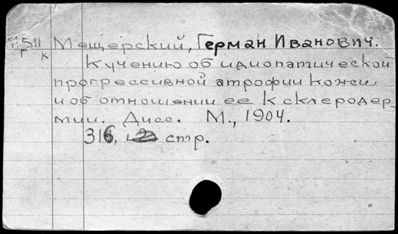 511 Мещерский, Герман Иванович.
К учению об идиопатической
прогрессивной атрофии кожи
и об отношении ее к склеродер
мии. Дисс. М., 1904.
316, стр.